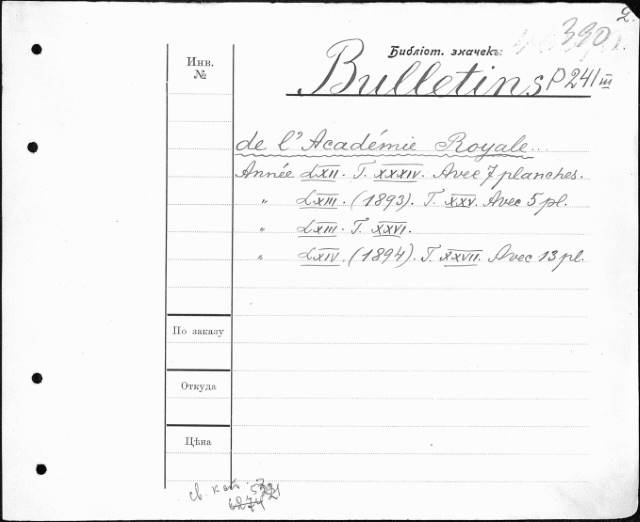 2.
330
Инв.
№
Библіот. значекъ:
Bulletins P 241 III
de l'Académie Royale..
Année LXII. T. XXXIV. Avec 7 planches.
" LXIII. (1893). T. XXV. Avec 5 pl.
" LXIII. T. XXVI.
" LXIV. (1894). T. XXVII. Avec 13 pl.
По заказу
Откуда
Цѣна
св. кат.